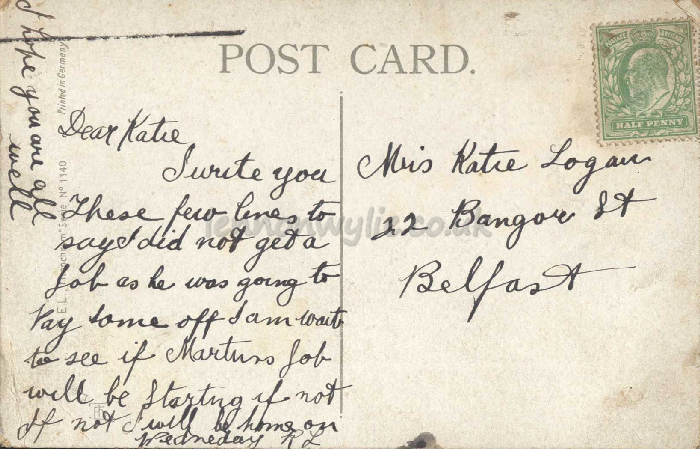 POST CARD.
HALF PENNY
I hope you are all
well
Printed in Germany
Series No 1140
Dear Katie
I write you
These few lines to
say I did not get a
Job as he was going to
Pay some off I am wait
to see if Martins Job
will be Starting if not
If not I will be home on
Wedneday R L
Mis Katie Logan
22 Bangor St
Belfast
jennanwylie.co.uk